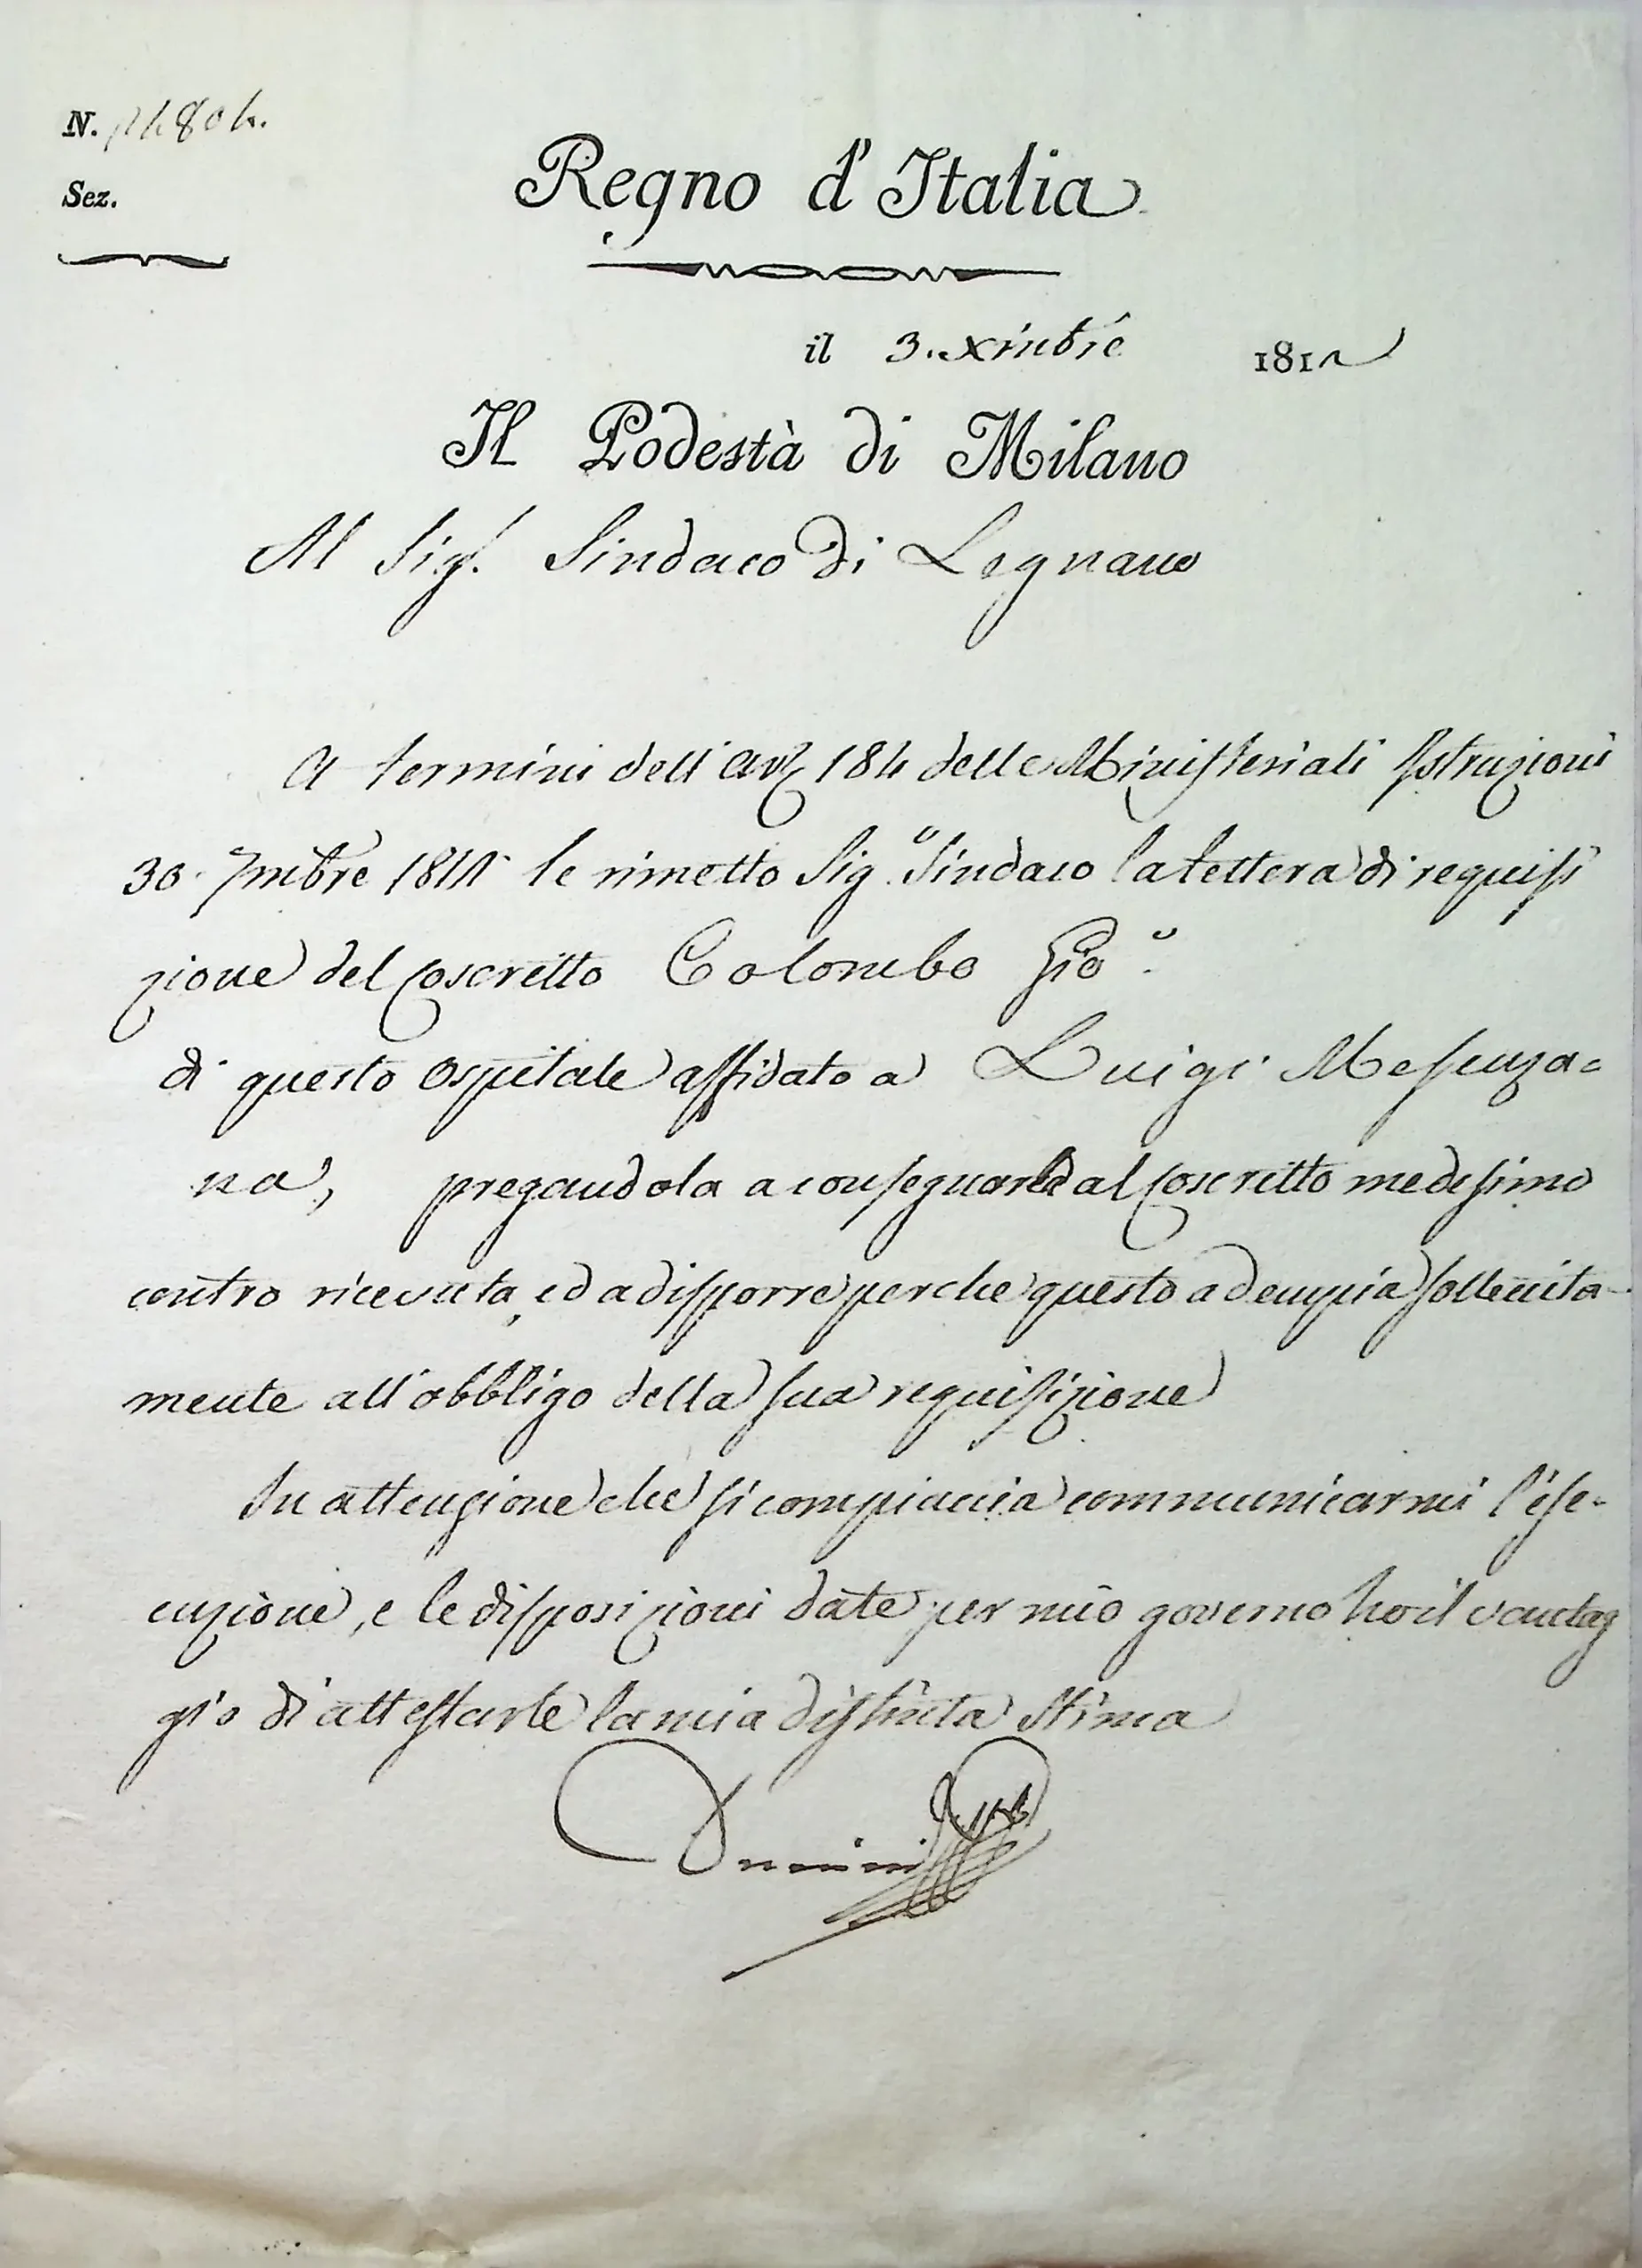 N. 12804.
Sez.
Regno d'Italia
il 3. Xmbre 1812
Il Podestà di Milano
Al Sig.r Sindaco di Legnano
A termini dell'art. 184 delle Ministeriali Istruzioni
30. 7mbre 1811 le rimetto Sig.r Sindaco la lettera di requisi
zione del Coscritto Colombo Gio.
di questo Ospitale affidato a Luigi Mesenza=
na, pregandola a consegnarla al Coscritto medesimo
contro ricevuta, ed a disporre perche questo adempia sollecita-
mente all'obbligo della sua requisizione
In attenzione che si compiaccia communicarmi l'ese-
cuzione, e le disposizioni date per mio governo ho il vantag
gio di attestarle la mia distinta stima